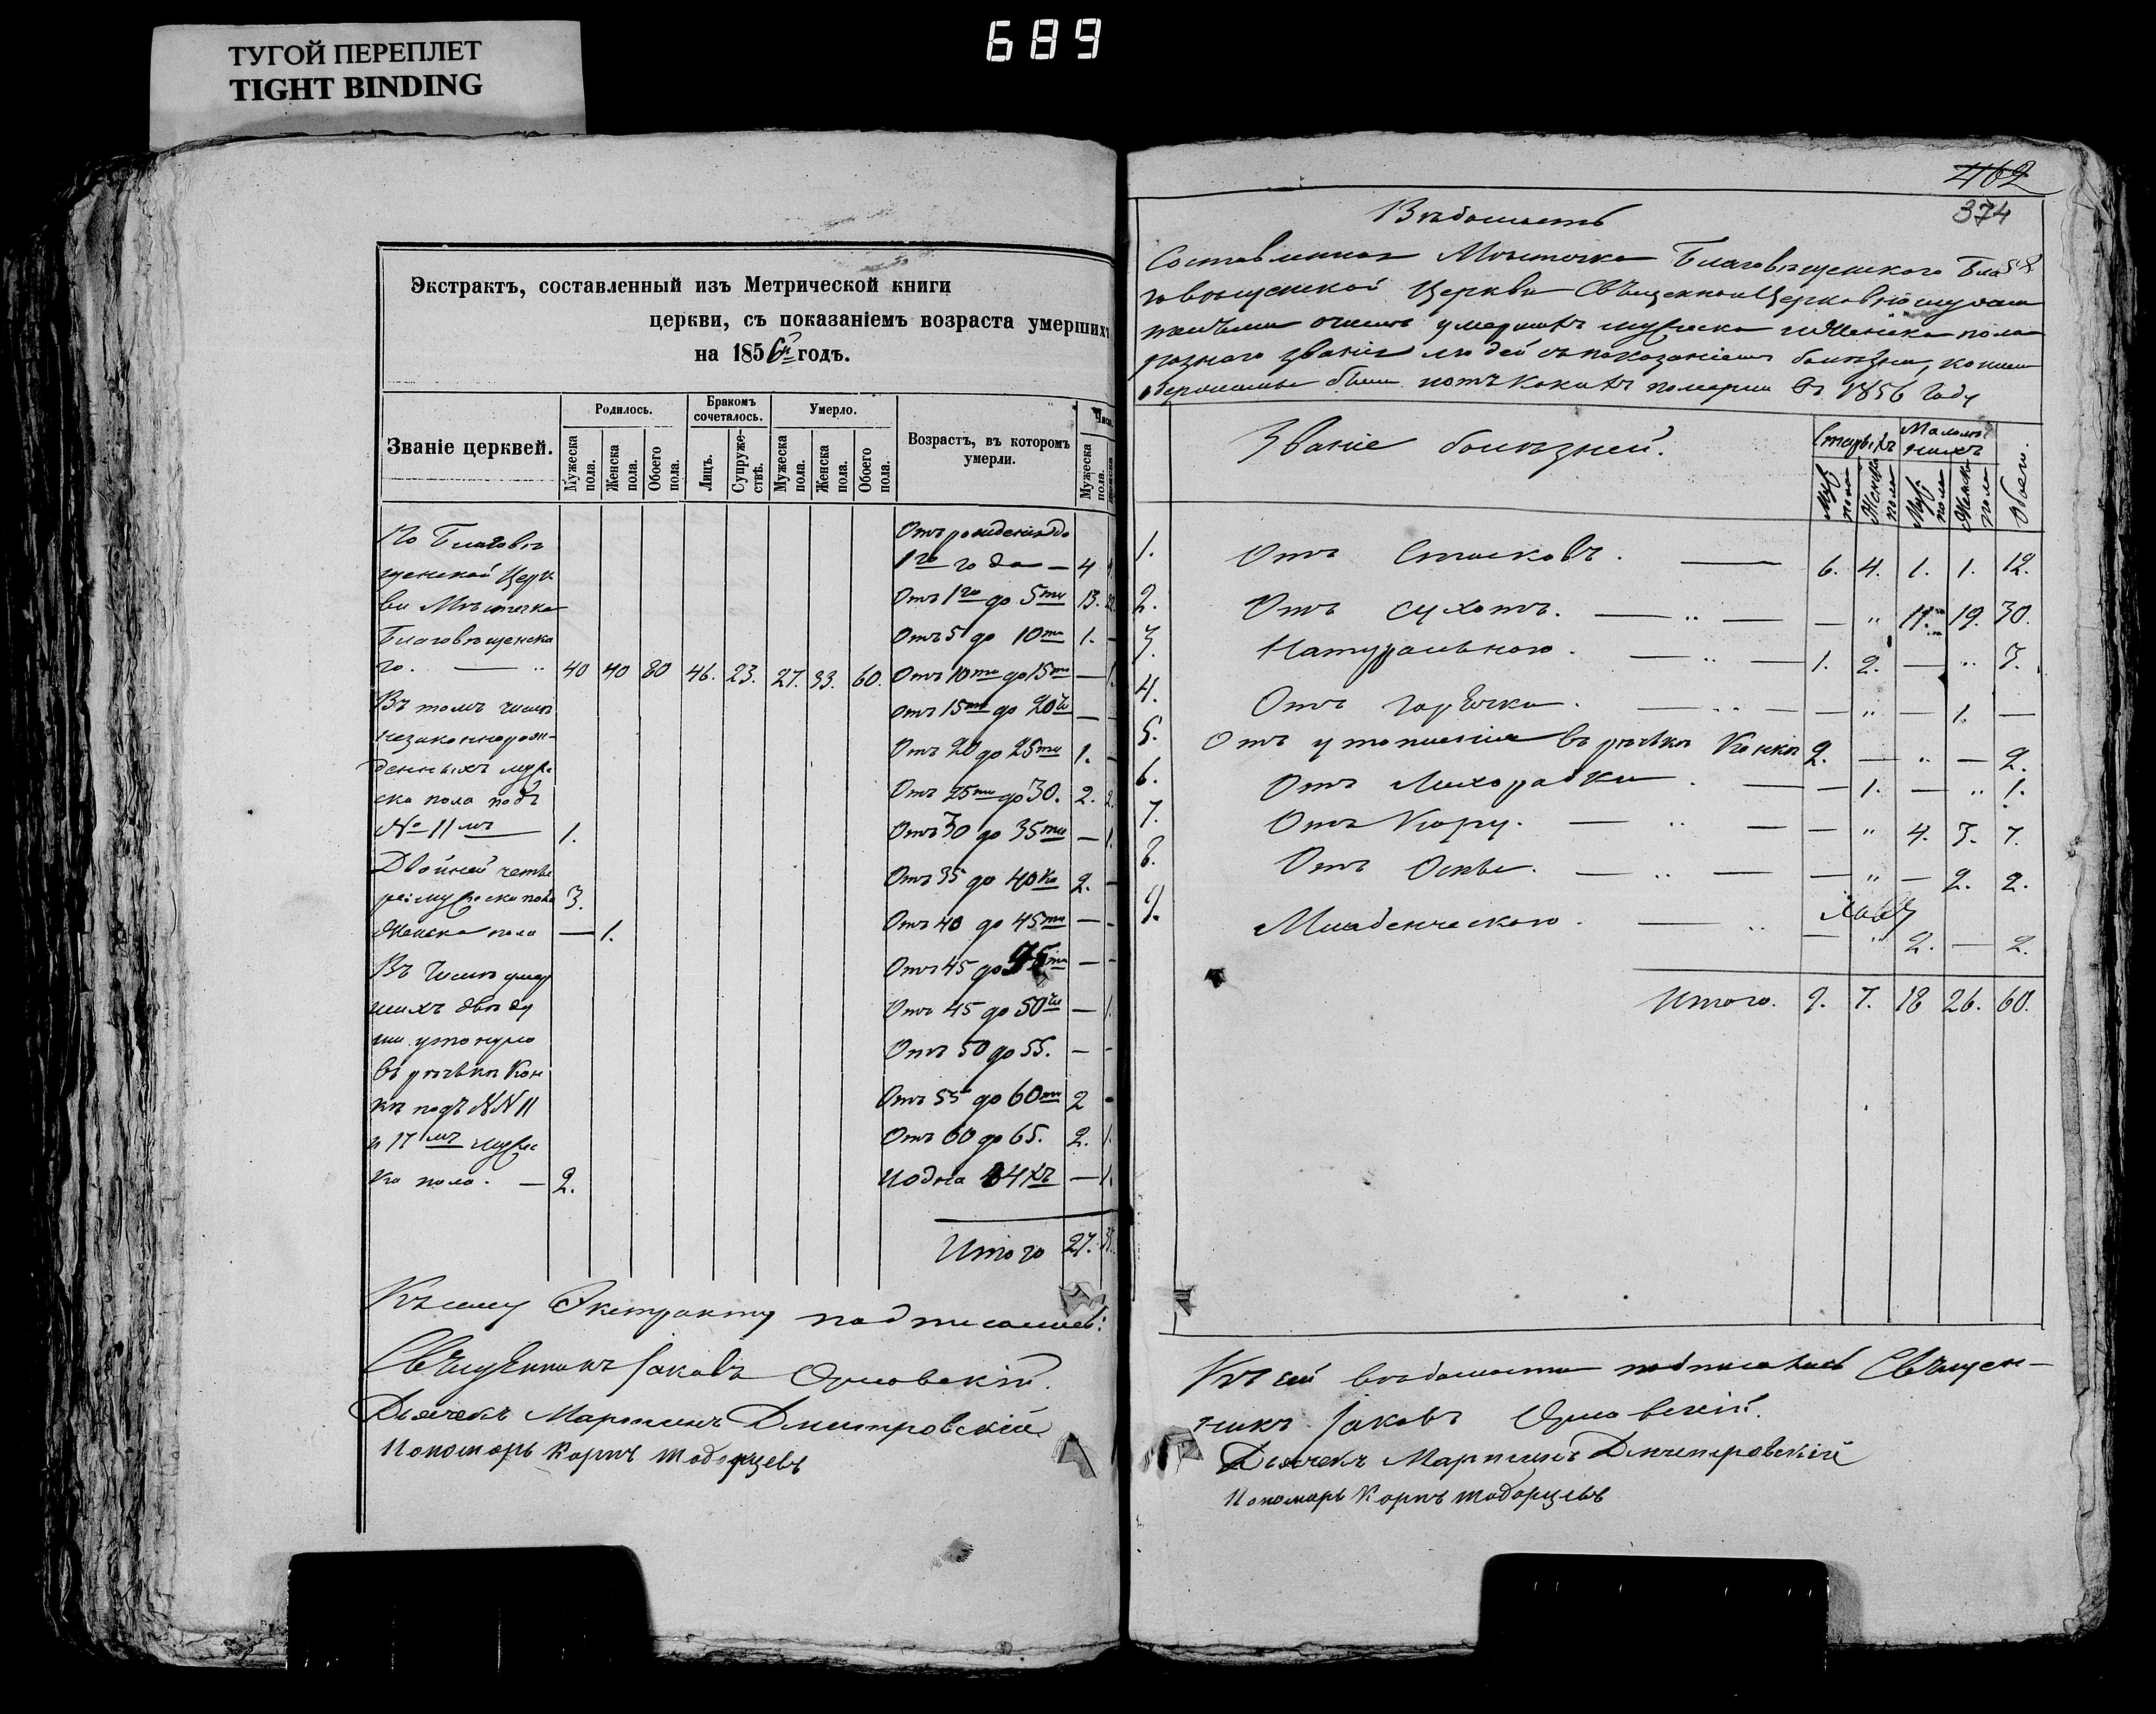 689
ТУГОЙ ПЕРЕПЛЕТ
TIGHT BINDING
Экстрактъ, составленный изъ Метрической книги
церкви, съ показаніемъ возраста умершихъ
на 1856й годъ.
Званіе церквей.
Родилось.
Бракомъ сочеталось.
Умерло.
Возрастъ, въ которомъ умерли.
Мужеска пола.
Женска пола.
Обоего пола.
Лицъ.
Супруже-ствъ.
Мужеска пола.
Женска пола.
Обоего пола.
Мужеска пола.
По Благовѣ
щенской Церк
ви Мѣстечка
Благовѣщенска
го. — 40 40 80 46. 23. 27. 33. 60.
Въ томъ числѣ
незаконнорож-
денныхъ муже
ска пола подъ
№ 11мъ 1.
Двойней четве
Женска пола — 1.
Въ числѣ умер
шихъ двѣ ду
ши утонуло
въ рѣчкѣ Кон
кѣ подъ №№ 11
и 17мъ мужес
ка пола. — 2.
Отъ рожденія до
1го года — 4
Отъ 1го до 5ти 13.
Отъ 5 до 10ти 1. —
Отъ 10ти до 15ти — 1.
Отъ 15ти до 20ти — —
Отъ 20 до 25ти 1. —
Отъ 25ти до 30. 2. 2.
Отъ 30 до 35ти — 1.
Отъ 35 до 40ка 2. —
Отъ 40 до 45ти — —
Отъ 45 до — —
Отъ 45 до 50ти — 1.
Отъ 50 до 55. — —
Отъ 55 до 60ти 2
Отъ 60 до 65. 2. 1.
И одна — 1.
Итого 27.
Къ сему Экстракту подписались:
Свѣщенникъ Іаковъ Орловскій.
Дьячекъ Мартинъ Дмитровскій
Пономарь Карпъ Тодорцевъ
462
374
Вѣдомость
Составленная Мѣстечка Благовѣщенскаго Бла
говѣщенской Церкви
умершихъ мужеска и женска пола
разнаго званія людей съ показаніемъ болѣзни, коими
одержимы были и отъ какихъ померли въ 1856 Году
Званіе болѣзней.
Старыхъ
Малолѣтнихъ
Муж пола
Женска пола
Муж пола
Женска пола
Обоего.
1. Отъ — 6. 4. 1. 1. 12.
2. Отъ сухотъ. — — — „ 11. 19. 30.
3. Натуральною. — — 1. 2. — „ 3.
4. Отъ горячки. — — — „ — 1. —
5. Отъ утопленія въ рѣчкѣ Конкѣ 2. — „ — 2.
6. Отъ Лихорадки. — — 1. — „ 1.
7. Отъ Кору. — — — „ 4. 3. 7.
8. Отъ Оспы. — — — „ — 2. 2.
9. Младенческою. — — „ 2. — 2.
Итого. 9. 7. 18 26. 60.
Къ сей вѣдомости подписались Свѣщен-
никъ Іаковъ Орловскій.
Дьячекъ Мартинъ Дмитровскій
Пономарь Карпъ Тодорцевъ